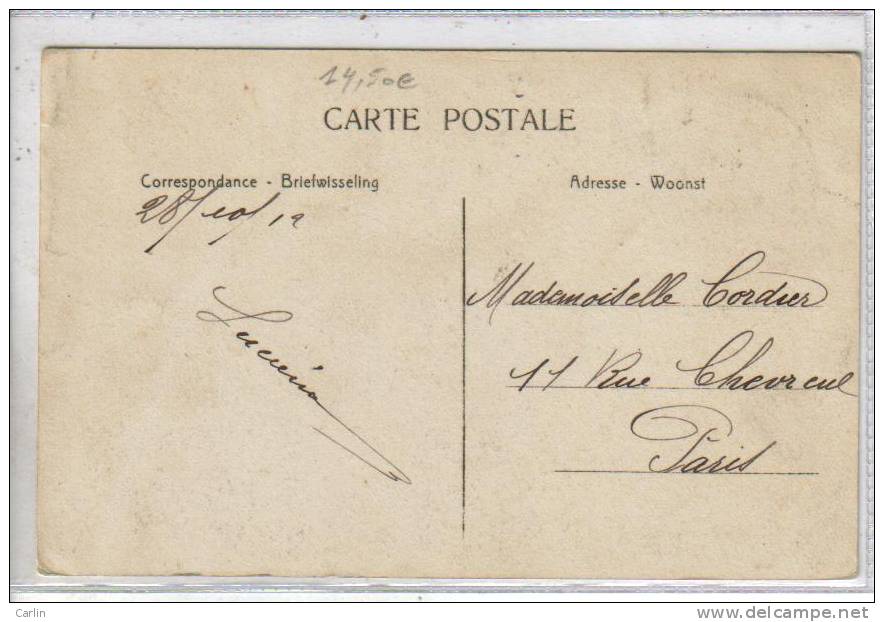 14,50€
CARTE POSTALE
Correspondance - Briefwisseling
Adresse - Woonst
28/10/12
Mademoiselle Cordier
11 Rue Chevreul
Paris
Carlin
www.delcampe.net